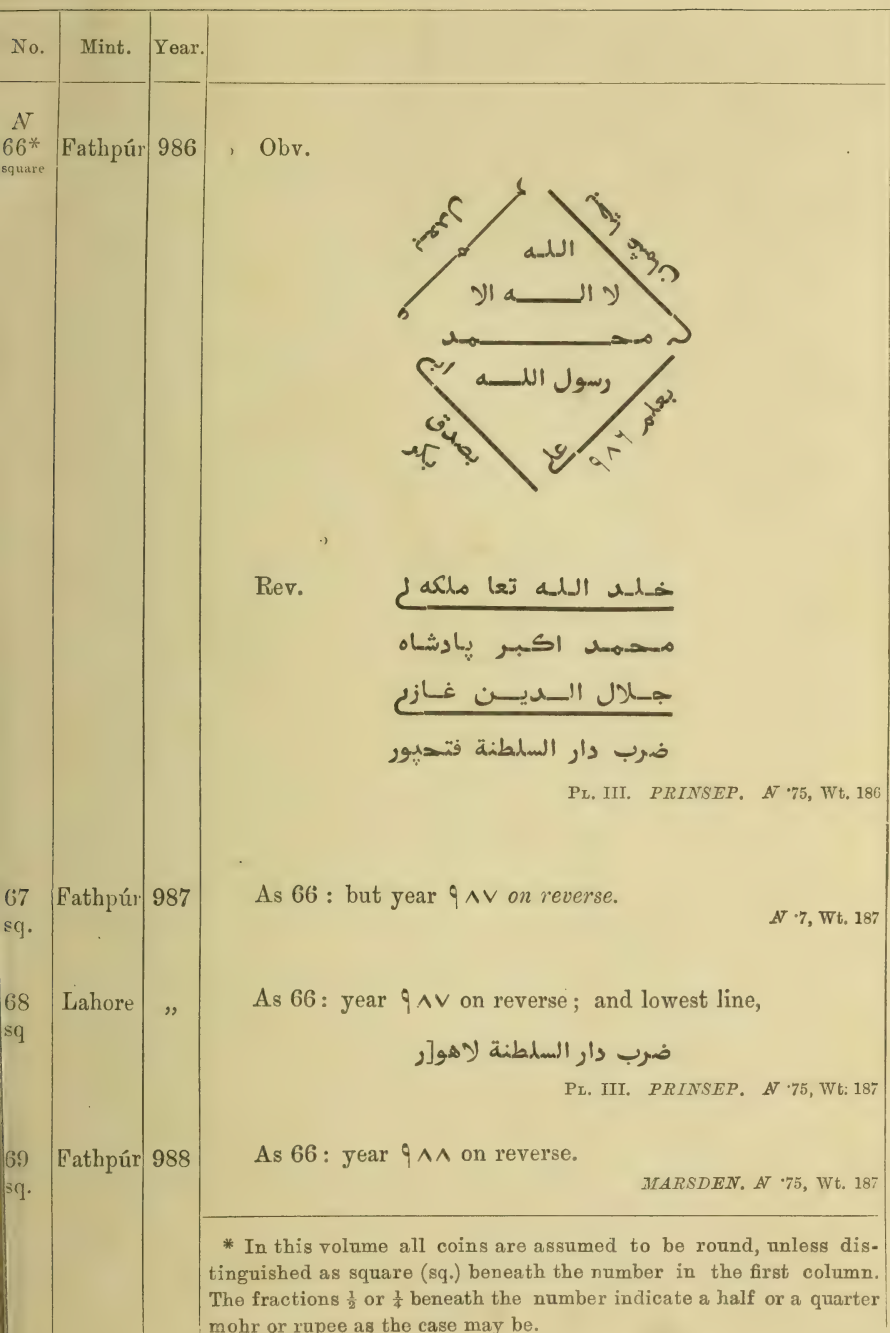 No. Mint. Year.
N
66* Fathpúr 986 Obv.
square
بعدل
عمر
بحيا عثمان
الله
لا اله الا
محمد
رسول الله
ابى
بصدق
بكر
على
بعلم ٩٨٦
Rev.
خلد الله تعا ملكه لى
محمد اكبر پادشاه
جلال الدين غازى
ضرب دار السلطنة فتحپور
PL. III. PRINSEP. N ·75, Wt. 186
67 Fathpúr 987 As 66 : but year ٩٨٧ on reverse.
sq. N ·7, Wt. 187
68 Lahore ,, As 66 : year ٩٨٧ on reverse ; and lowest line,
sq
ضرب دار السلطنة لاهو[ر
PL. III. PRINSEP. N ·75, Wt. 187
69 Fathpúr 988 As 66 : year ٩٨٨ on reverse.
sq. MARSDEN. N ·75, Wt. 187
* In this volume all coins are assumed to be round, unless dis-
tinguished as square (sq.) beneath the number in the first column.
The fractions ½ or ¼ beneath the number indicate a half or a quarter
mohr or rupee as the case may be.